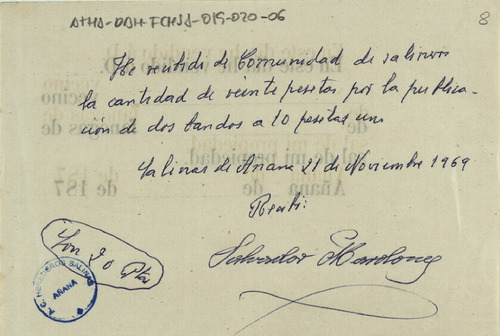 ATHA-DAH-FCHSA-019-020-06
8
He recibido de Comunidad de salineros
la cantidad de veinte pesetas por la publica-
ción de dos bandos a 10 pesetas uno
Salinas de Añana 21 de Noviembre 1969
Recibí:
Salvador
Son 20 Pts
HEREDEROS SALINAS
AÑANA
vecino
de
de mi propiedad.
Añana de de 187